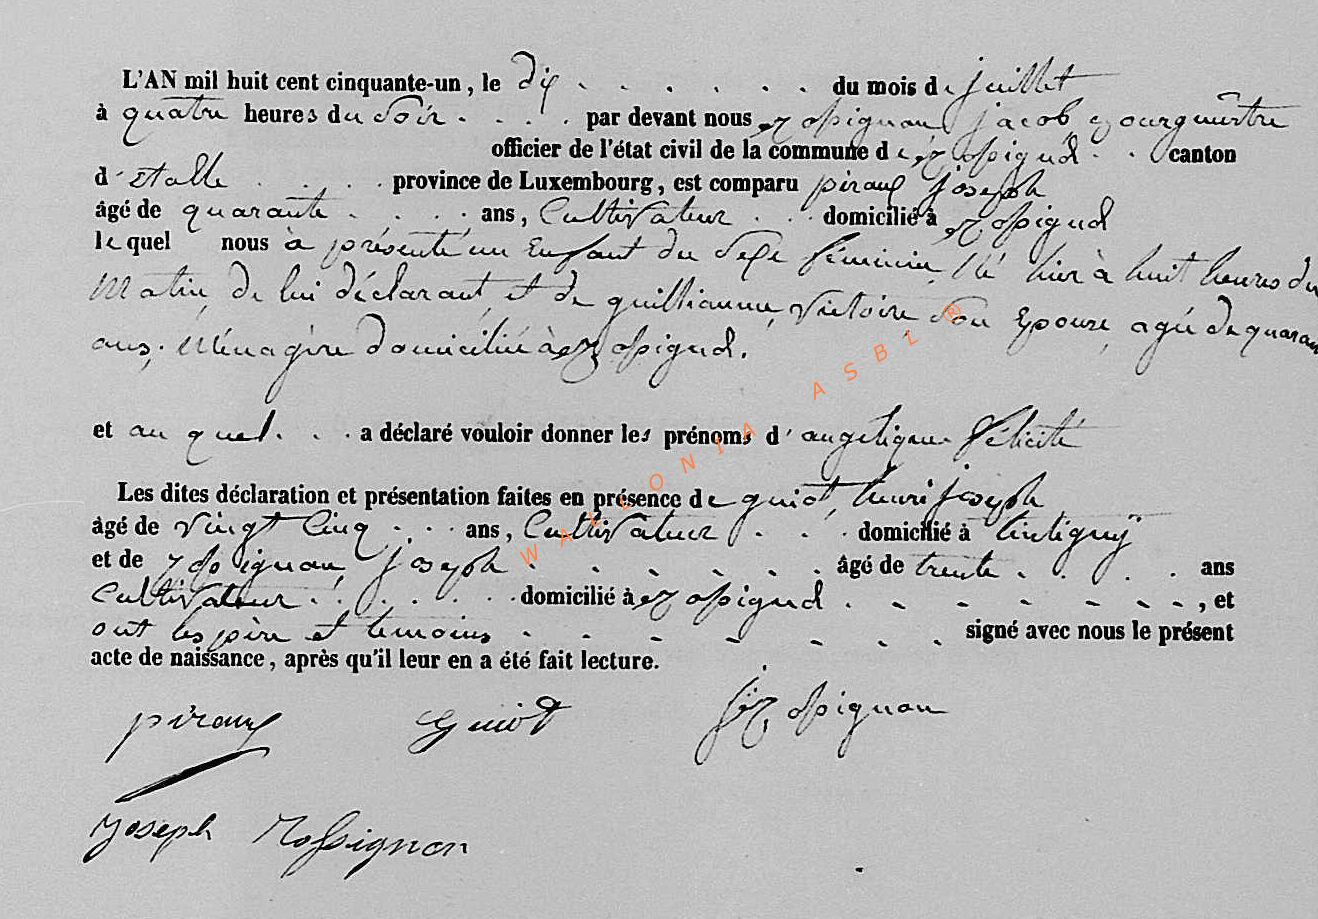 L'AN mil huit cent cinquante-un, le dix . . . . . . du mois de juillet
à quatre heures du Soir . . . . par devant nous Rossignon, jacob Bourgumêstre
officier de l'état civil de la commune de Rossignol . . canton
d'étalle . . . . province de Luxembourg, est comparu piraux joseph
âgé de quarante . . . . ans, Cultivateur . . . domicilié à Rossignol
lequel nous à présenté un Enfant du Sexe féminin, Né hier à huit heures du
Matin, de lui déclarant, et de guilliaume, Victoire Son Epouse, agée de quaran
ans, Ménagère domiciliée à Rossignol.
et au quel . . . a déclaré vouloir donner les prénoms d'angelique Félicité
Les dites déclaration et présentation faites en présence de guiot, henri joseph
âgé de vingt Cinq . . . ans, Cultivateur . . . . domicilié à tintigny
et de Rossignon, joseph . . . . . . . âgé de trente . . . . ans
Cultivateur . . . . . . . domicilié à Rossignol . . . . . . . ., et
ont les père et temoins . . . . . . . signé avec nous le présent
acte de naissance, après qu'il leur en a été fait lecture.
piraux Guiot Rossignon
Joseph Rossignon
WALLONIA ASBL ®